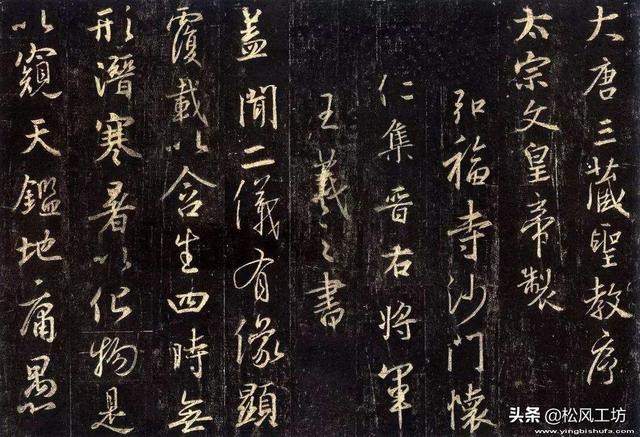 大唐三藏聖教序
太宗文皇帝製
弘福寺沙門懷
仁集晋右將軍
王羲之書
蓋聞二儀有像顯
覆載以含生四時無
形潛寒暑以化物是
以窺天鑑地庸愚
头条 @松风工坊
www.yingbishufa.com